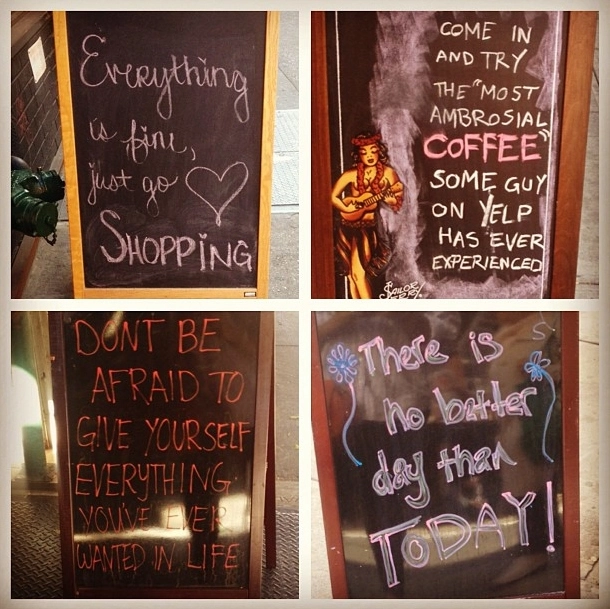 Everything
is fine,
just go
SHOPPING
COME IN
AND TRY
THE "MOST
AMBROSIAL
COFFEE"
SOME GUY
ON YELP
HAS EVER
EXPERIENCED
SAILOR
JERRY
DONT BE
AFRAID TO
GIVE YOURSELF
EVERYTHING
YOU'VE EVER
WANTED IN LIFE
There is
no better
day than
TODAY!